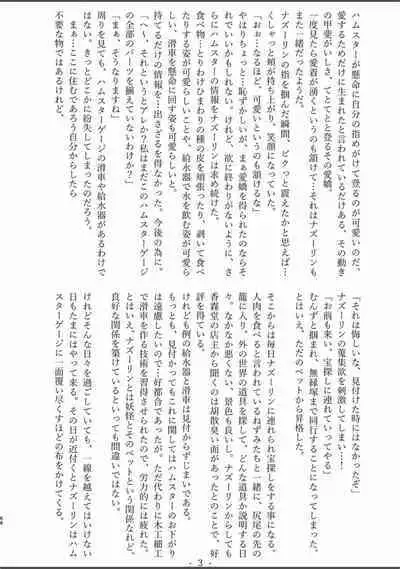 ハムスターが懸命に自分の指めがけて登るのが可愛いのだ。
愛するためだけに生まれたと言われているだけある、その動き
の甲斐がいしさ。てとてとと登るその愛嬌。
一度見たら愛着が湧くというのも頷けて…それはナズーリンも
また一緒だったようだ。
ナズーリンの指を掴んだ瞬間、ビクっと震えたかと思えば…
くしゃっと頬が持ち上がり、笑顔になっていた。
「おお…なるほど、可愛いというのも頷けるな」
やはりちょっと…恥ずかしいが、まぁ愛嬌を得られたのならそ
れでいいかもしれない。けれど、欲に終わりがないように、さ
らにハムスターの情報をナズーリンは求め続けた。
食べ物…とりわけひまわりの種の皮を頬張ったり、剥いて食べ
たりする姿が可愛らしいことや、給水器で水を飲む姿が可愛ら
しい、滑車を懸命に回す姿も可愛らしいと。
持てるだけの情報を…出さざるを得なかった。今後の為に。
「へぇ～、それというとアレか?私はまだこのハムスターゲージ
の全部のパーツを揃えていないわけか?」
「まぁ、そうなりますね」
周りを見ても、ハムスターゲージの滑車や給水器があるわけで
はない。きっとどこかに紛失してしまったのだろう。
まぁ…ここに住むであろう自分からしたら
不要な物ではあるけれど。
「それは悔しいな、見付けた時にはなかったぞ」
ナズーリンの蒐集欲を刺激してしまい…!
「お前も来い、宝探しに連れていってやる」
むんずと掴まれ、無縁塚まで同行することになってしまった。
とはいえ、ただのペットから昇格した。
そこからは毎日ナズーリンに連れられ宝探しをする事になる。
人肉を食べると言われているねずみたちと一緒に、尻尾の先の
籠に入り、外の世界の道具を探して、どんな道具か説明する日
々。なかなか悪くない、景色も良いし。ナズーリンからしても
香霖堂の店主から聞くのは胡散臭い面があったとのことで、好
評を得ている。
けれども例の給水器と滑車は見付からずじまいである。
もっとも、見付かってもこれに関してはハムスターのお下がり
は遠慮したいので…好都合であったが、ただ代わりに木工細工
で滑車を作る技術を習得させられたので、労力的には疲れた。
とはいえ、ナズーリンとは妖怪とそのペットという関係なれど、
良好な関係を築けているといっても間違いではない。
けれどそんな日々を過ごしていても、一線を越えてはいけない
日もたまにはやって来る。その日が近付くとナズーリンはハム
スターゲージに一面覆い尽くすほどの布をかけてくる。
- 3 -